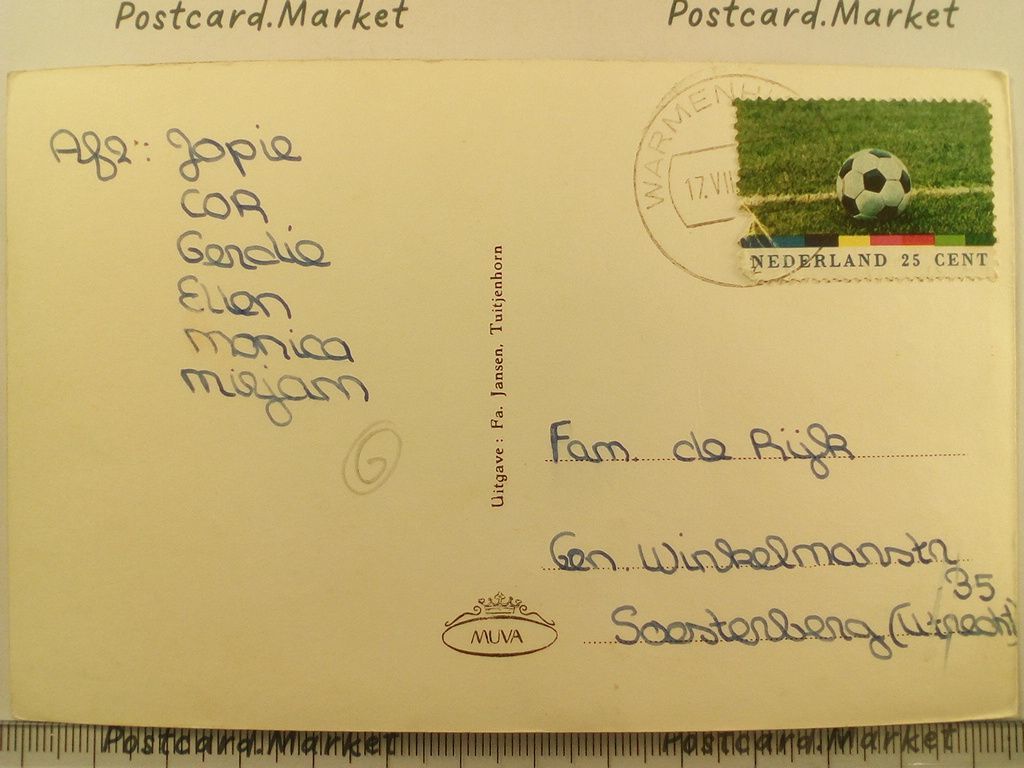 Postcard.Market Postcard.Market
WARMENH
17.VII
NEDERLAND 25 CENT
Afz: Jopie
COR
Gerdie
Ellen
Monica
Mirjam
G
Uitgave: Fa. Jansen, Tuitjenhorn
Fam. de Rijk
Gen. Winkelmanstr
35
Soesterberg (Utrecht)
MUVA
Postcard.Market Postcard.Market